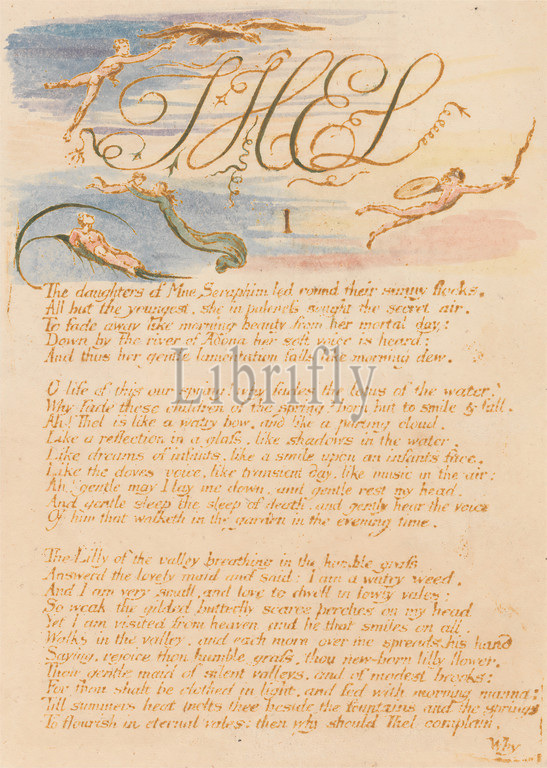 THEL
I
The daughters of Mne Seraphim led round their sunny flocks.
All but the youngest. she in paleness sought the secret air.
To fade away like morning beauty from her mortal day:
Down by the river of Adona her soft voice is heard:
And thus her gentle lamentation falls like morning dew.
Librifly
O life of this our spring! why fades the lotus of the water?
Why fade these children of the spring? born but to smile & fall.
Ah! Thel is like a watry bow. and like a parting cloud.
Like a reflection in a glass. like shadows in the water.
Like dreams of infants. like a smile upon an infants face.
Like the doves voice, like transient day, like music in the air:
Ah! gentle may I lay me down, and gentle rest my head.
And gentle sleep the sleep of death. and gently hear the voice
Of him that walketh in the garden in the evening time.
The Lilly of the valley breathing in the humble grass
Answerd the lovely maid and said: I am a watry weed,
And I am very small, and love to dwell in lowly vales:
So weak the gilded butterfly scarce perches on my head
Yet I am visited from heaven and he that smiles on all.
Walks in the valley, and each morn over me spreads his hand
Saying, rejoice thou humble grass, thou new-born lilly flower.
Thou gentle maid of silent valleys, and of modest brooks:
For thou shalt be clothed in light, and fed with morning manna:
Till summers heat melts thee beside the fountains and the springs
To flourish in eternal vales: then why should Thel complain.
Why